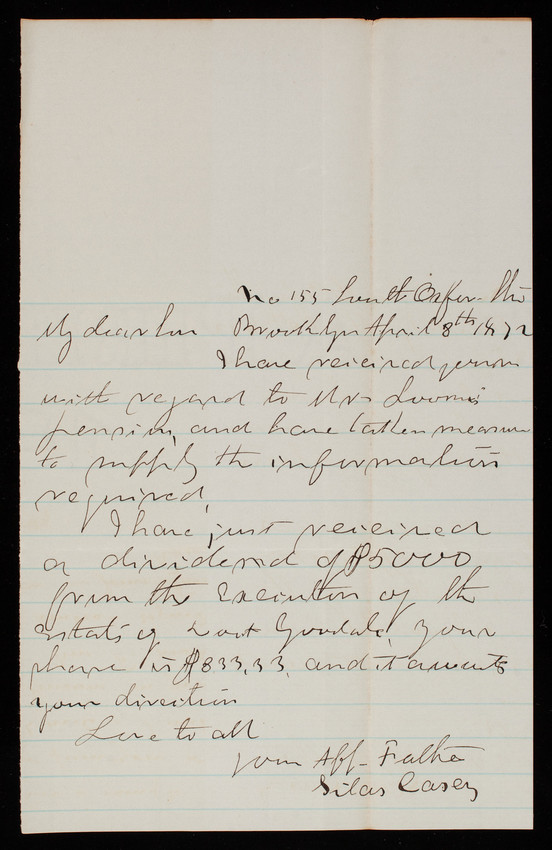 No 155 South Oxford St
My dear Son Brooklyn April 8th 1872
I have received yours
with regard to Mrs Loomis
pension, and have taken measure
to supply the information
required,
I have just received
a dividend of $5000
from the Executors of the
estate of Goodale, your
share is $833,33, and it awaits
your direction
Love to all
your Aff- Father
Silas Casey